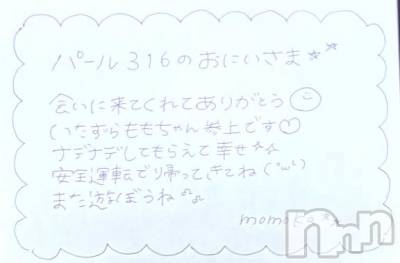 パール316のおにいさま☆☆
会いに来てくれてありがとう☺
いたずらももちゃん参上です♡
ナデナデしてもらえて幸せ☆☆
安全運転で帰ってきてね(°ω°)
また遊ぼうね♪♪
momoka
Nmn